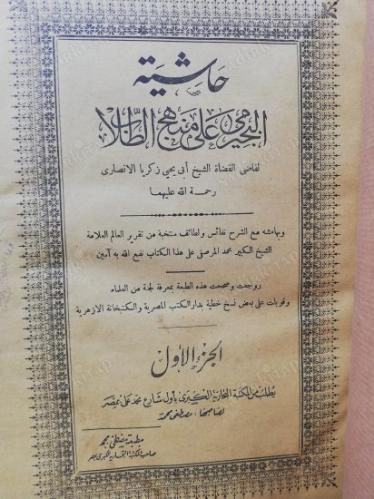 حاشية
البجيرمي على منهج الطلاب
لقاضي القضاة الشيخ أبي يحيى زكريا الانصارى
رحمة الله عليهما
وبهامشه مع الشرح نفائس ولطائف منتخبة من تقرير العالم العلامة
الشيخ الكبير محمد المرصفى على هذا الكتاب نفع الله به آمين
روجعت وصححت هذه الطبعة بمعرفة لجنة من العلماء
وقوبلت على بعض نسخ خطية بدار الكتب المصرية والكتبخانة الازهرية
الجزء الأول
يطلب من المكتبة التجارية الكبرى بأول شارع محمد على بمصر
لصاحبها : مصطفى محمد
مطبعة مصطفى محمد
صاحب المكتبة التجارية الكبرى بمصر